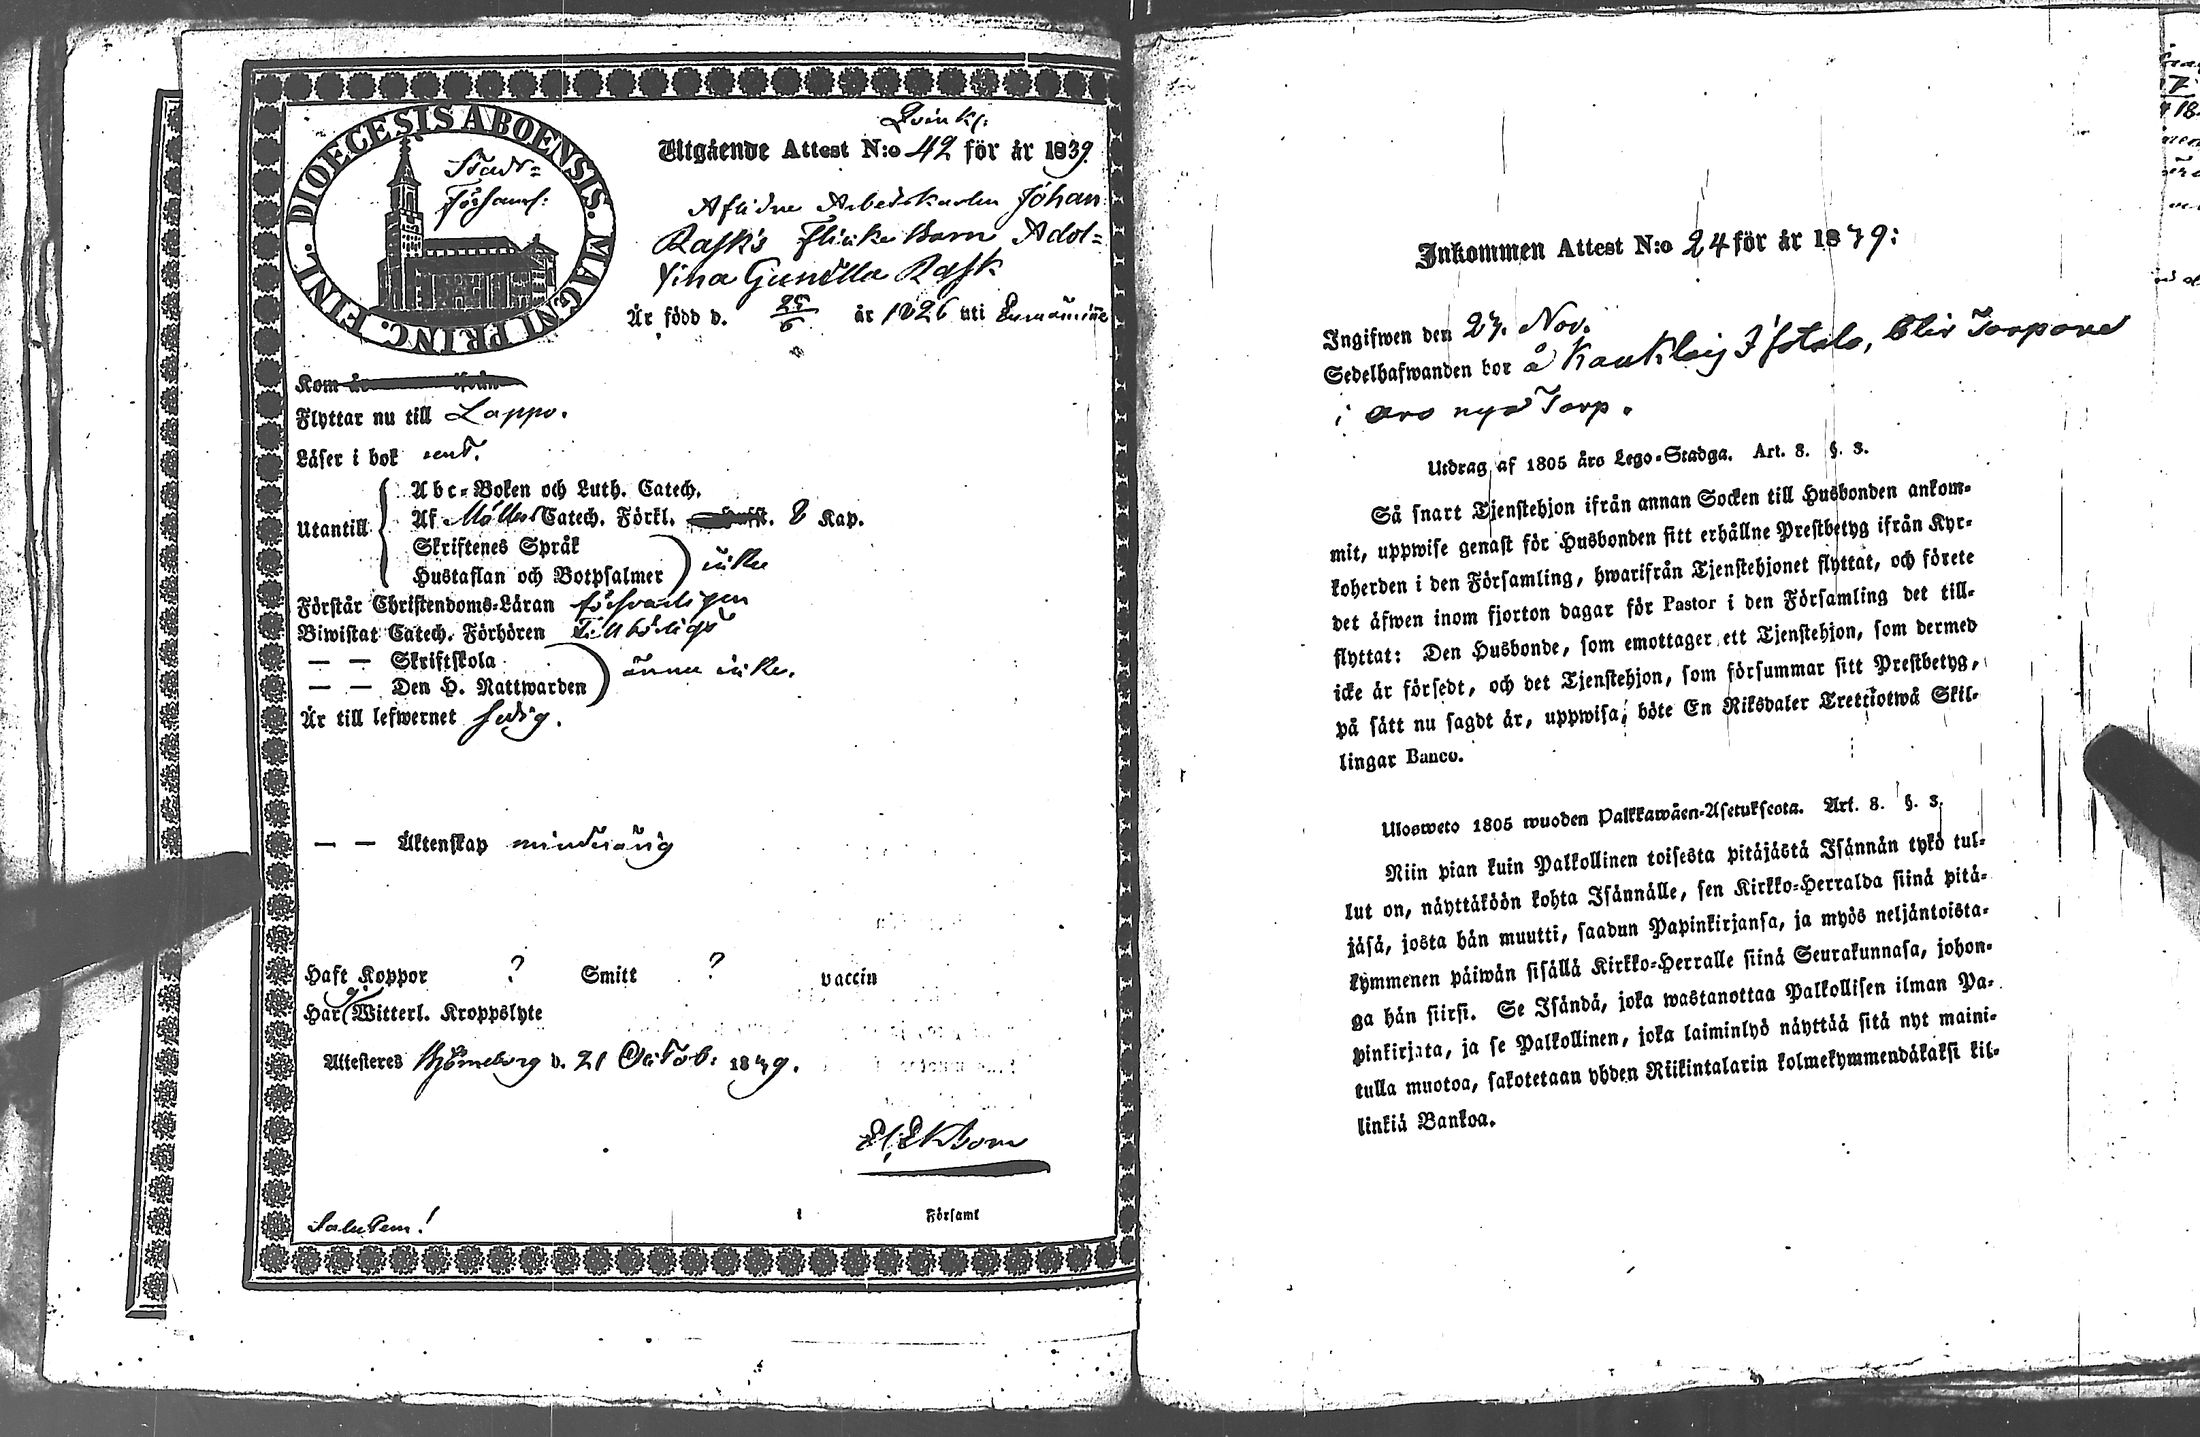 DIOECESIS ABOENSIS. MAGNI PRINC. FINL.
Stads=
Församl:
Qvinkj:
Utgående Attest N:o 42 för år 1839.
Aflidne Arbetskarlen Johan
Rasks Flicke Barn Adol=
fina Gunilla Rask
År född d. 25/6 år 1826 uti
Kom år ifrån
Flyttar nu till Lappo.
Låser i bok rent.
Utantill
Abc=Boken och Luth. Catech.
Af Möllers Catech. Förkl. 8 Kap.
Skriftenes Språk
Hustaflan och Botpsalmer icke
Förstår Christendoms=Låran försvarligen
Biwistat Catech. Förhören Tillbörligt
— — Skriftskola
— — Den H. Nattwarden ännu icke.
År till lefwernet sedig.
— — Åktenskap minderårig
Haft Koppor ? Smitt ? vaccin
Har ej Witterl. Kroppslyte
Attesteres Björneborg d. 21 Octob: 1839.
Ekbom
Salutem!
i Församl
Inkommen Attest N:o 24 för år 1839:
Ingifwen den 27. Nov.
Sedelhafwanden bor å
i nya Torp.
Utdrag af 1805 åro Lego=Stadga. Art. 8. §. 3.
Så snart Tjenstehjon ifrån annan Socken till Husbonden ankom=
mit, uppwise genast för Husbonden sitt erhållne Prestbetyg ifrån Kyr=
koherden i den Församling, hwarifrån Tjenstehjonet flyttat, och förete
det åfwen inom fjorton dagar för Pastor i den Församling det till=
flyttat: Den Husbonde, som emottager ett Tjenstehjon, som dermed
icke år försedt, och det Tjenstehjon, som försummar sitt Prestbetyg,
på sått nu sagdt år, uppwisa, böte En Riksdaler Trettiotwå Skil=
lingar Banco.
Ulosweto 1805 wuoden Palkkawåen=Asetuksesta. Art. 8. §. 3.
Niin pian kuin Palkollinen toisesta pitåjåstå Isånnån tykö tul=
lut on, nåyttåköön kohta Isånnålle, sen Kirkko=Herralda siinå pitå=
jåså, josta hån muutti, saadun Papinkirjansa, ja myös neljåntoista=
kymmenen påiwån sisållå Kirkko=Herralle siinå Seurakunnasa, johon=
ga hån siirsi. Se Isåndå, joka wastanottaa Palkollisen ilman Pa=
pinkirjata, ja se Palkollinen, joka laiminlyö nåyttåå sitå nyt maini=
tulla muotoa, sakotetaan yhden Riikintalarin kolmekymmendåkaksi kil=
linkiå Bankoa.